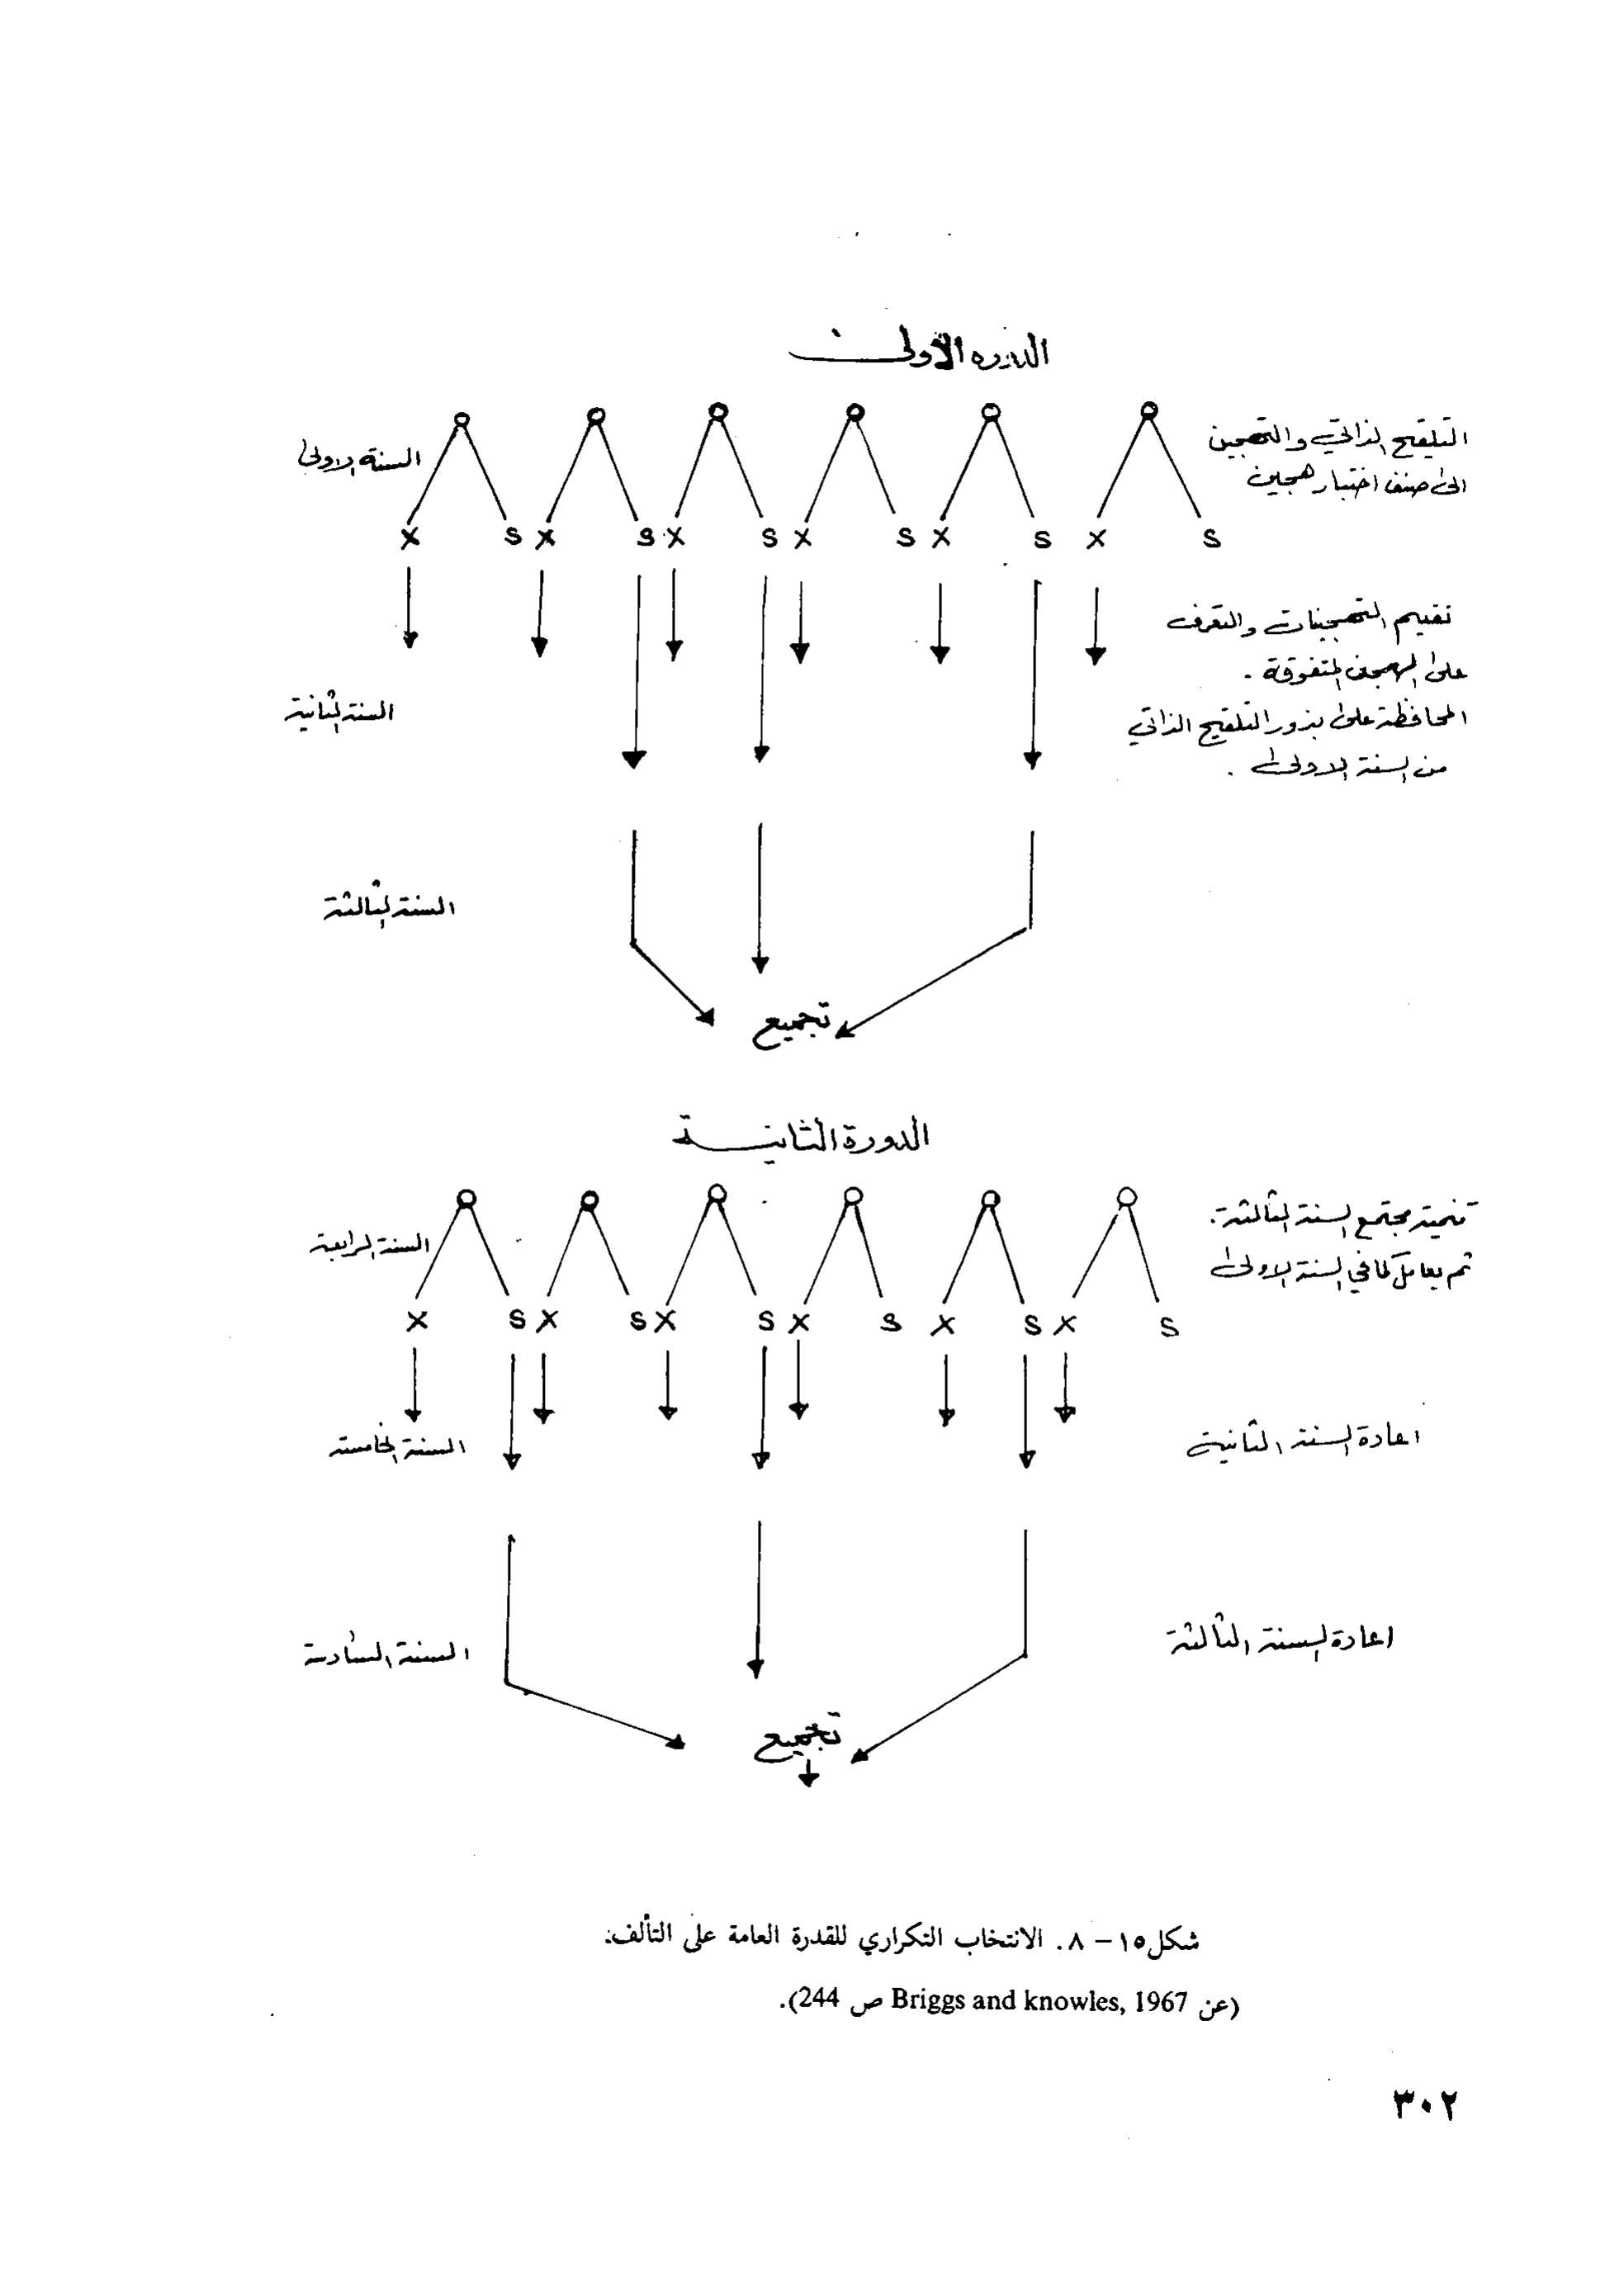 الدوره الأولى
التلقيح الذاتي والتهجين
الى صنف اختبار هجين
السنة الاولى
X S X S X S X S X S X S
تقييم التهجينات والتعرف
على الهجن المتفوقة .
المحافظة على بذور التلقيح الذاتي
من السنة الاولى .
السنة الثانية
السنة الثالثة
تجميع
الدورة الثانية
تنمية مجتمع السنة الثالثة .
ثم يعامل كما في السنة الاولى
السنة الرابعة
X S X S X S X S X S X S
اعادة السنة الثانية
السنة الخامسة
اعادة السنة الثالثة
السنة السادسة
تجميع
شكل ١٥ – ٨. الانتخاب التكراري للقدرة العامة على التألف:
(عن Briggs and knowles, 1967 ص 244).
٣٠٢